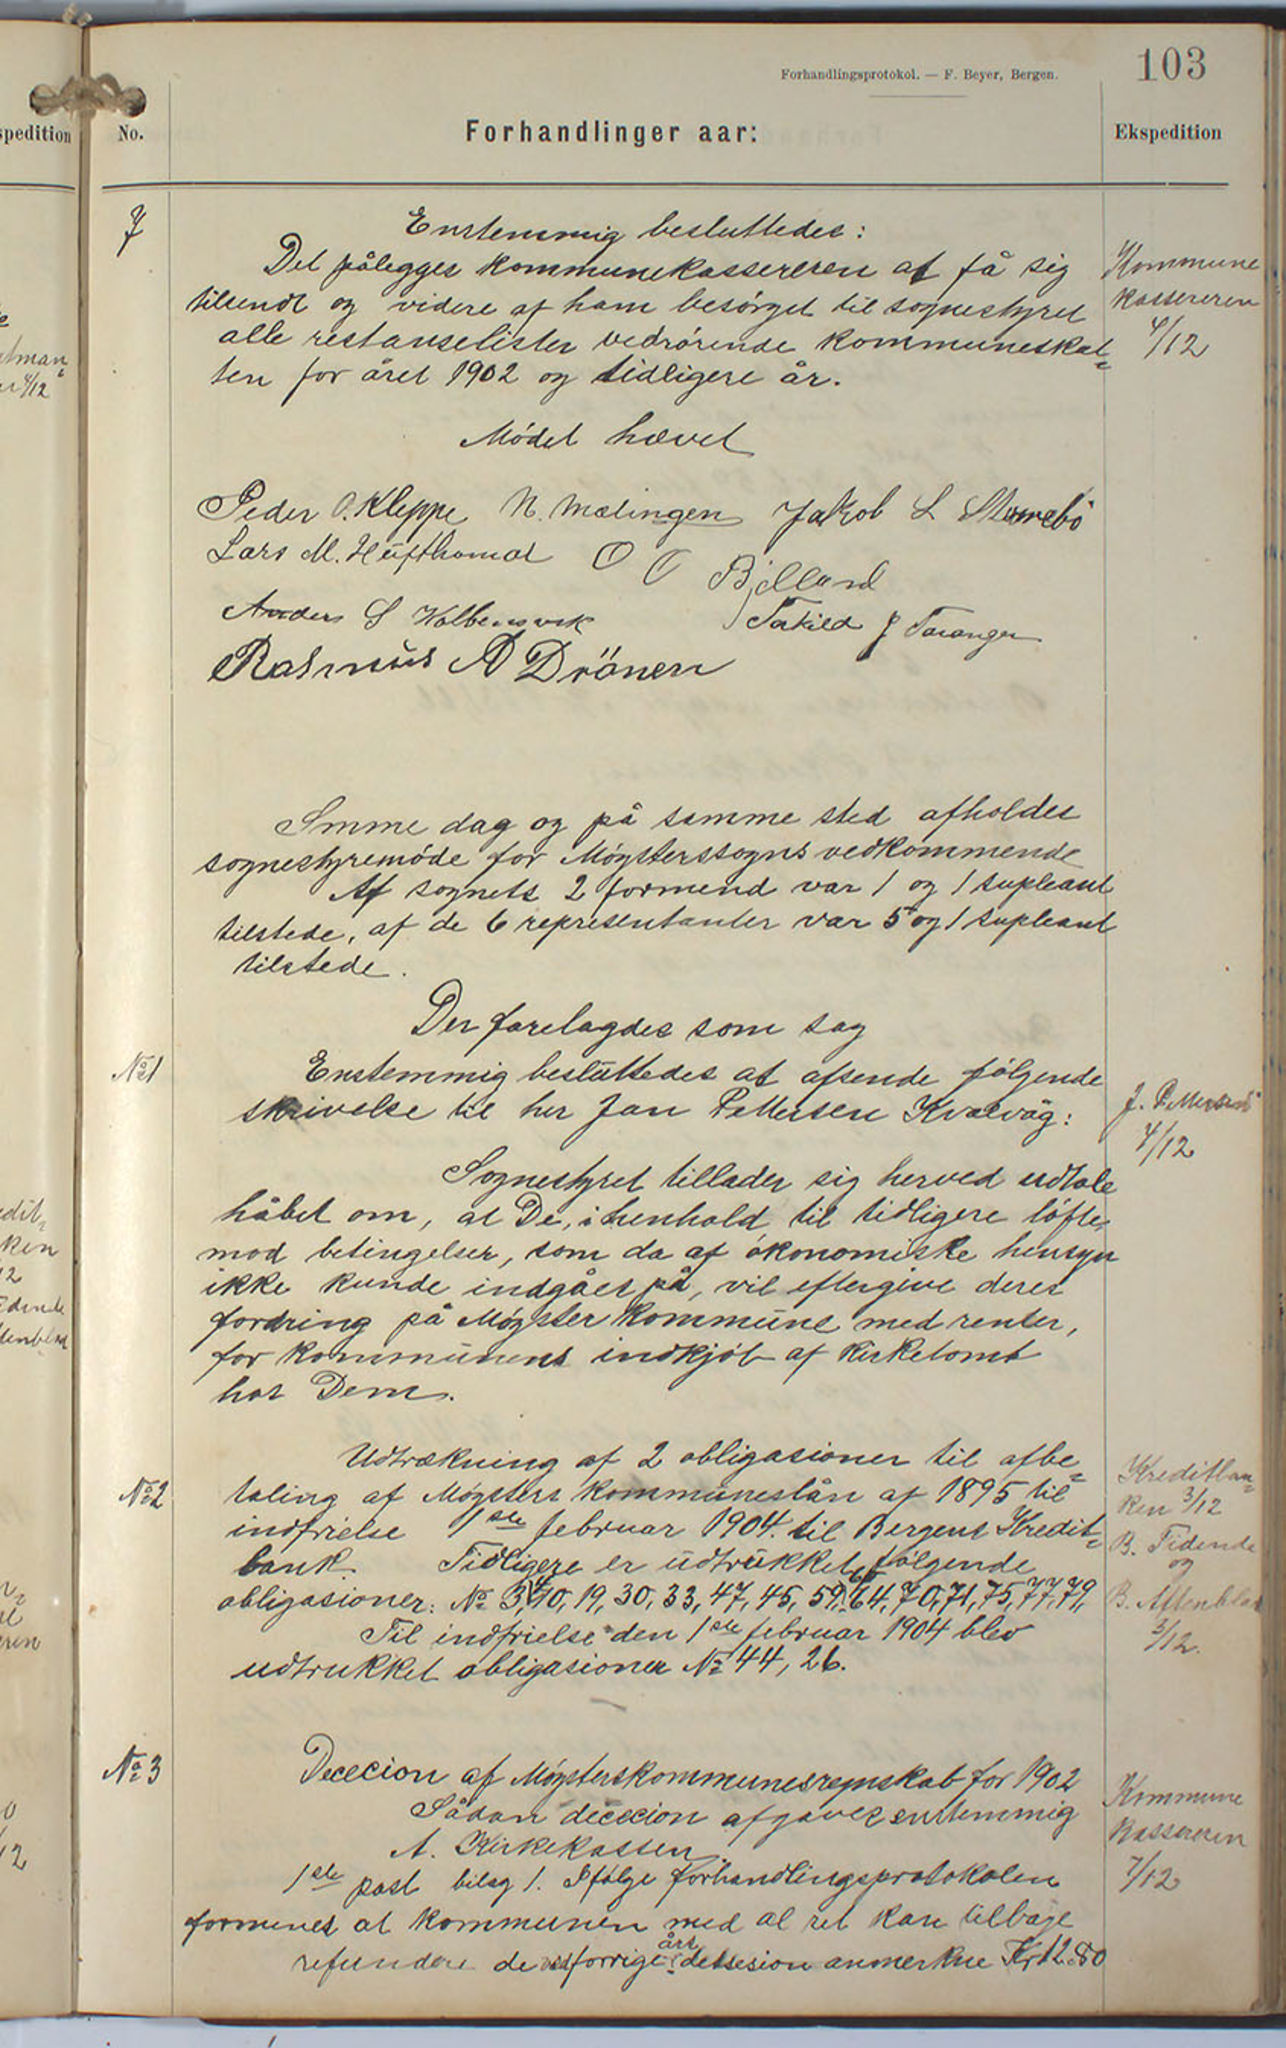 Forhandlingsprotokol. — F. Beyer, Bergen.
103
spedition
No.
Forhandlinger aar:
Ekspedition
7
Enstemmig besluttedes:
Det pålegges kommunekassereren at få sig
tilsendt og videre af ham besörget til sognestyret
alle restanselister vedrörende kommuneskat-
ten for året 1902 og tidligere år.
Kommune
kassereren
4/12
Mödet hævet
Peder O. Kleppe N. Mælingen Jakob L Storebö
Lars M. Hufthamar O O Bjelland
Anders S Kolbensvik Takild J Taranger
Rasmus A Drönen
Smme dag og på samme sted afholdes
sognestyremöde for Mögsterssogns vedkommende
Af sognets 2 formend var 1 og 1 supleant
tilstede, af de 6 representanter var 5 og 1 supleant
tilstede.
Der forelagdes som sag
No 1
Enstemmig besluttedes at afsende fölgende
skrivelse til her Jan Pettersen Kvalvåg:
J. Pettersen
4/12
Sognestyret tillader sig herved udtale
håbet om, at De, i henhold til tidligere löfte,
mod betingelser, som da af ökonomiske hensyn
ikke kunde indgåes på, vil eftergive deres
fordring på Mögster kommune med renter,
for kommunens indkjöb af kirketomt
hos Dem.
No 2
Udtrækning af 2 obligasioner til afbe-
taling af Mögsters kommuneslån af 1895 til
indfrielse 1ste februar 1904 til Bergens Kredit-
bank. Tidligere er udtrukket fölgende
obligasioner: No 3, 10, 19, 30, 33, 47, 45, 59, 64, 70, 71, 75, 77, 79,
Til indfrielse den 1ste februar 1904 blev
udtrukket obligasioner No 44, 26.
Kreditban-
ken 3/12
B. Tidende
og
B. Aftenblad
3/12.
No 3
Dececion af Mögsterskommunesregnskab for 1902
Sådan dececion afgaves enstemmig
A. Kirkekassen.
1ste post bilag 1. Ifölge forhandlingsprotokolen
formenes at kommunen med al ret kan tilbage
refundere de ved forrige års detsesion anmerkne Kr 12.80
Kommune
kassereren
7/12